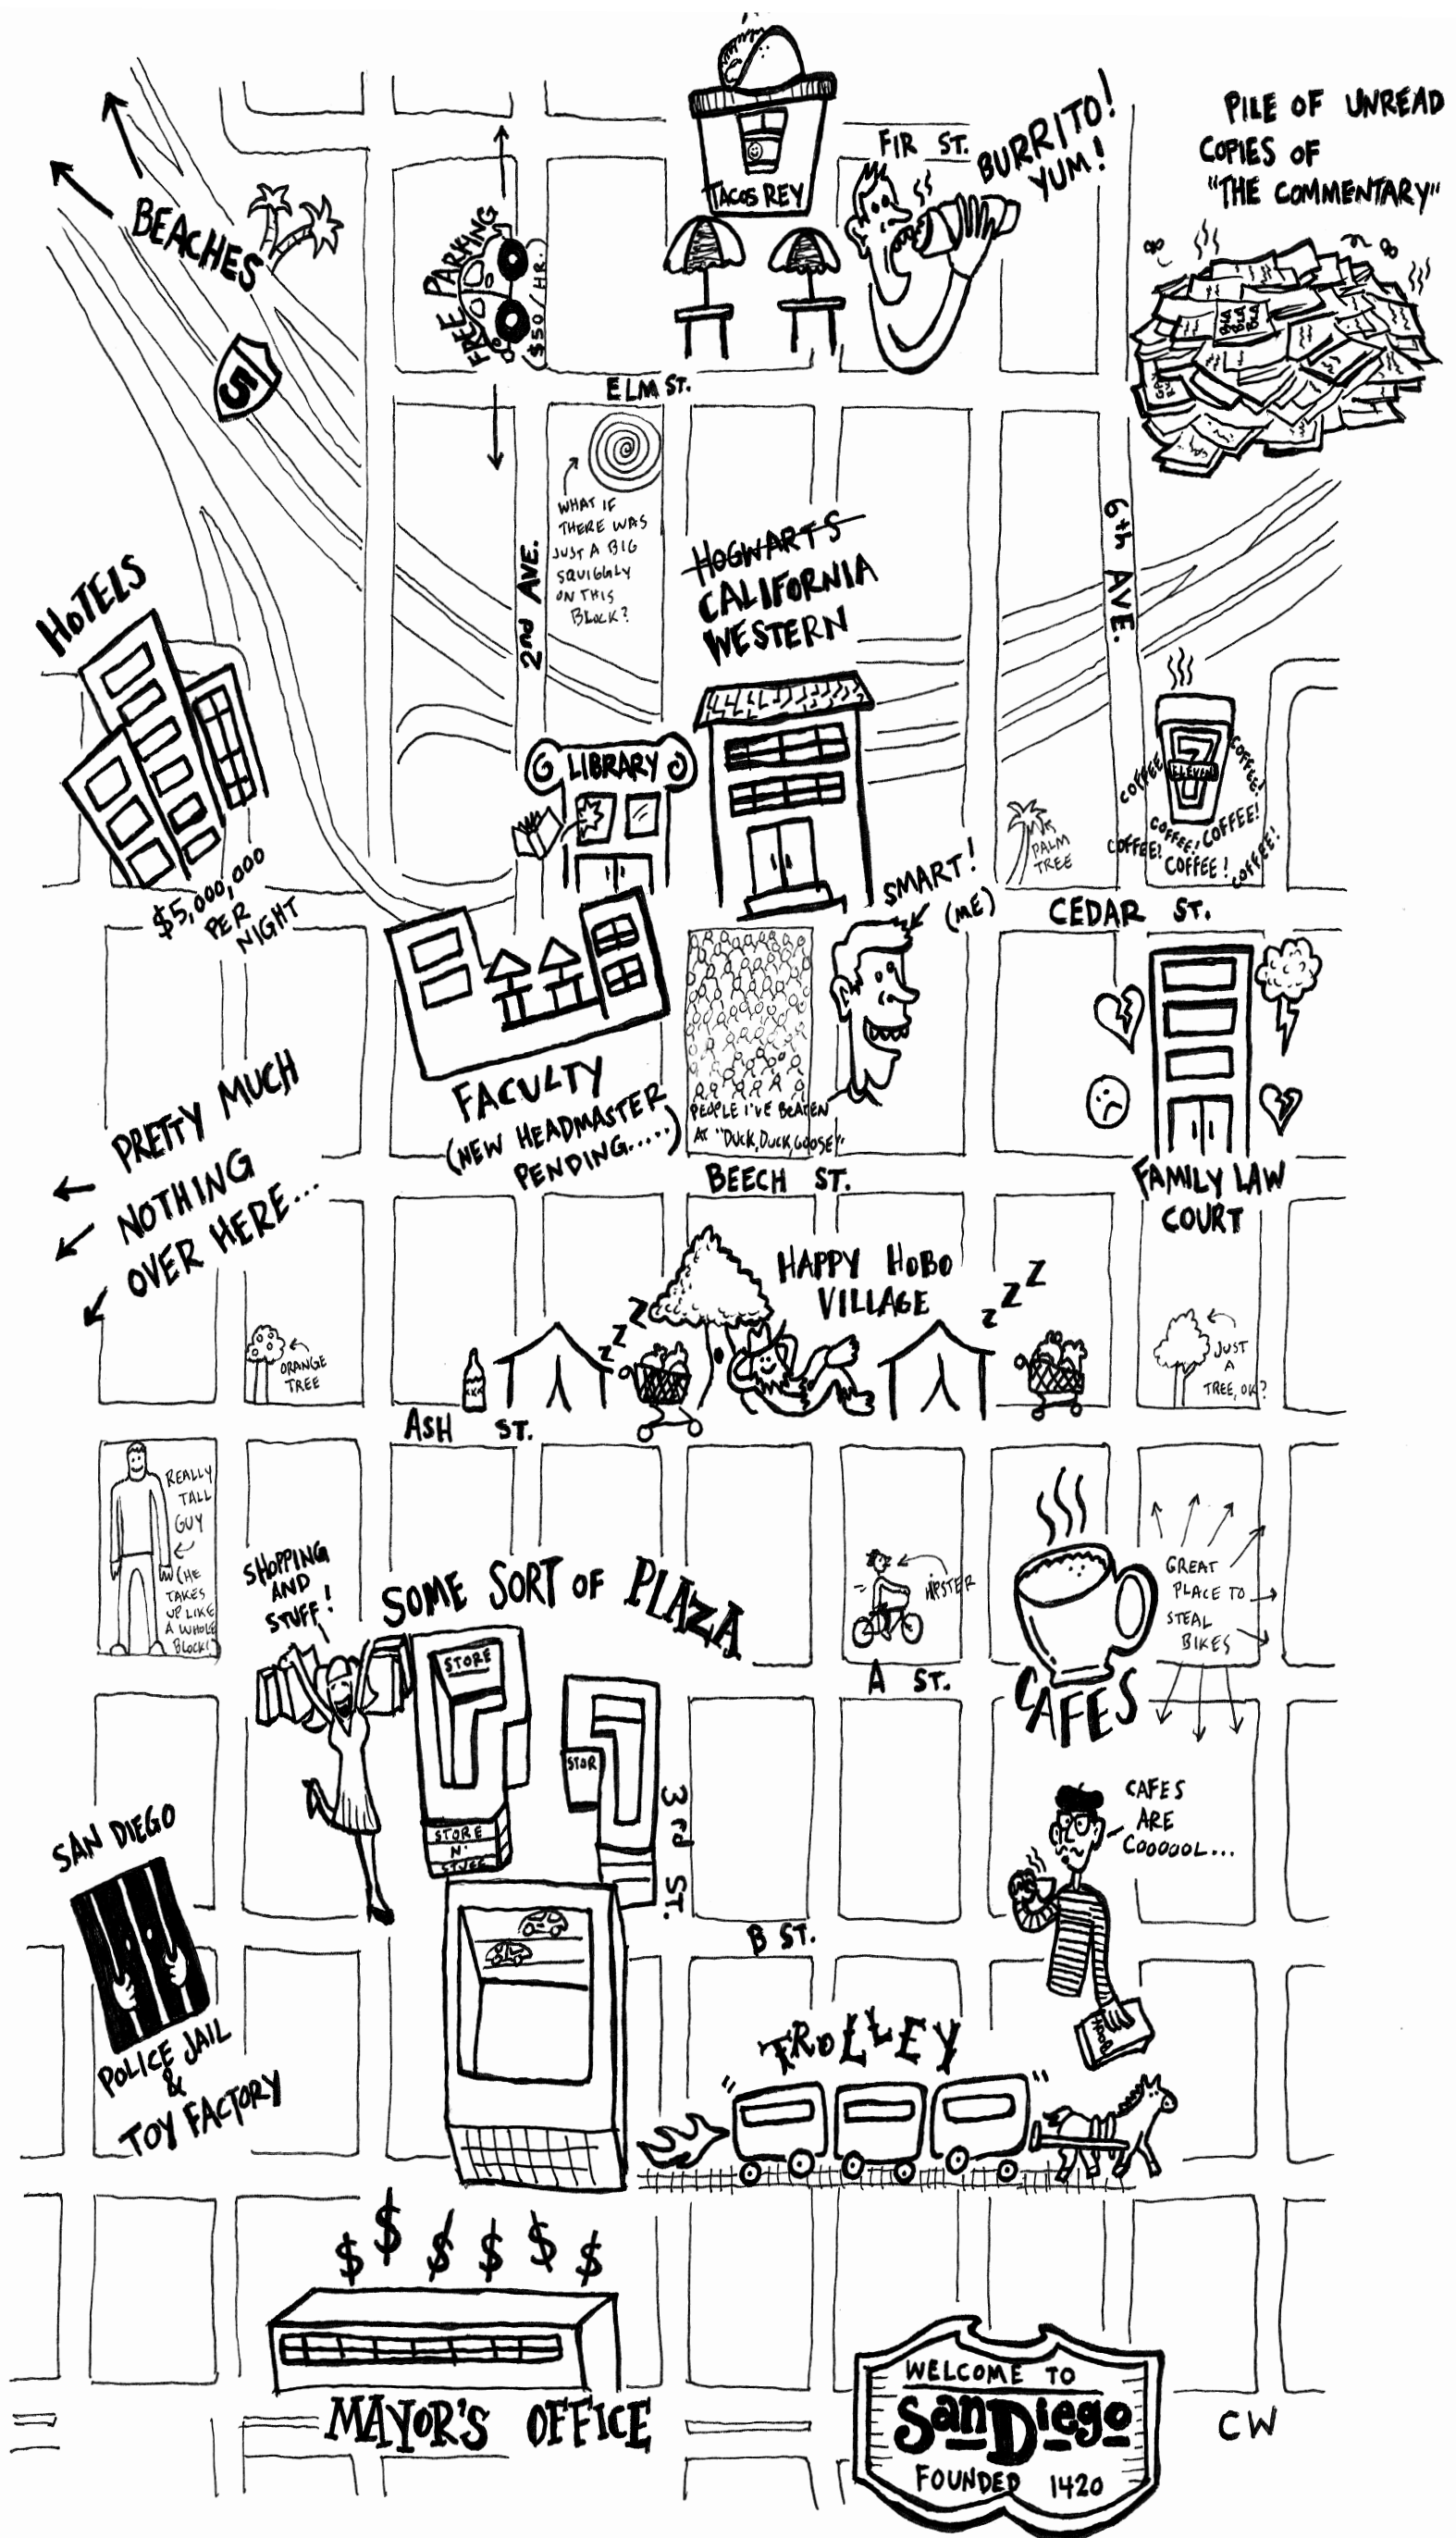 TACOS REY
FIR ST.
BURRITO!
YUM!
PILE OF UNREAD
COPIES OF
"THE COMMENTARY"
BLA
BLA
BLA
BEACHES
5
FREE PARKING
$50/HR.
ELM ST.
WHAT IF
THERE WAS
JUST A BIG
SQUIGGLY
ON THIS
BLOCK?
2nd AVE.
6th AVE.
HOGWARTS
CALIFORNIA
WESTERN
HOTELS
$5,000,000
PER
NIGHT
LIBRARY
PALM
TREE
7
ELEVEN
COFFEE
COFFEE!
COFFEE!
COFFEE!
COFFEE!
COFFEE!
COFFEE!
SMART!
(ME)
CEDAR ST.
FACULTY
(NEW HEADMASTER
PENDING.....)
PEOPLE I'VE BEATEN
AT "DUCK, DUCK, GOOSE"
BEECH ST.
FAMILY LAW
COURT
PRETTY MUCH
NOTHING
OVER HERE...
HAPPY HOBO
VILLAGE
Z Z Z
Z Z Z
XXX
ORANGE
TREE
JUST
A
TREE, OK?
ASH ST.
REALLY
TALL
GUY
(HE
TAKES
UP LIKE
A WHOLE
BLOCK!)
SHOPPING
AND
STUFF!
SOME SORT OF PLAZA
HIPSTER
GREAT
PLACE TO
STEAL
BIKES
A ST.
CAFES
STORE
STOR
STORE
N'
STUFF
3rd ST.
CAFES
ARE
COOOOOL...
SAN DIEGO
POLICE JAIL
&
TOY FACTORY
B ST.
TROLLEY
$ $ $ $ $ $
MAYOR'S OFFICE
WELCOME TO
San Diego
FOUNDED 1420
CW